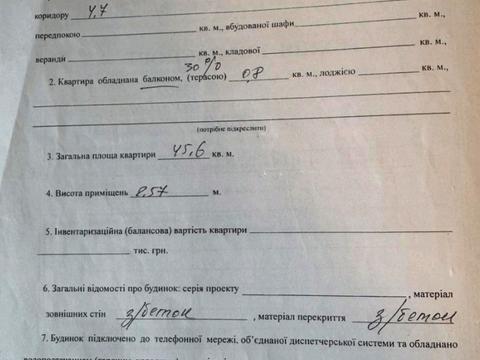 коридору 4,7 кв. м,
передпокою кв. м., вбудованої шафи кв. м.,
веранди кв. м., кладової кв. м.,
30%
2. Квартира обладнана балконом, (терасою) 0,8 кв. м., лоджією кв. м.,
(потрібне підкреслити)
3. Загальна площа квартири 45,6 кв. м.
4. Висота приміщень 2,57 м.
5. Інвентаризаційна (балансова) вартість квартири
тис. грн.
6. Загальні відомості про будинок: серія проекту , матеріал
зовнішних стін з/бетон , матеріал перекриття з/бетон
7. Будинок підключено до телефонної мережі, об'єднаної диспетчерської системи та обладнано